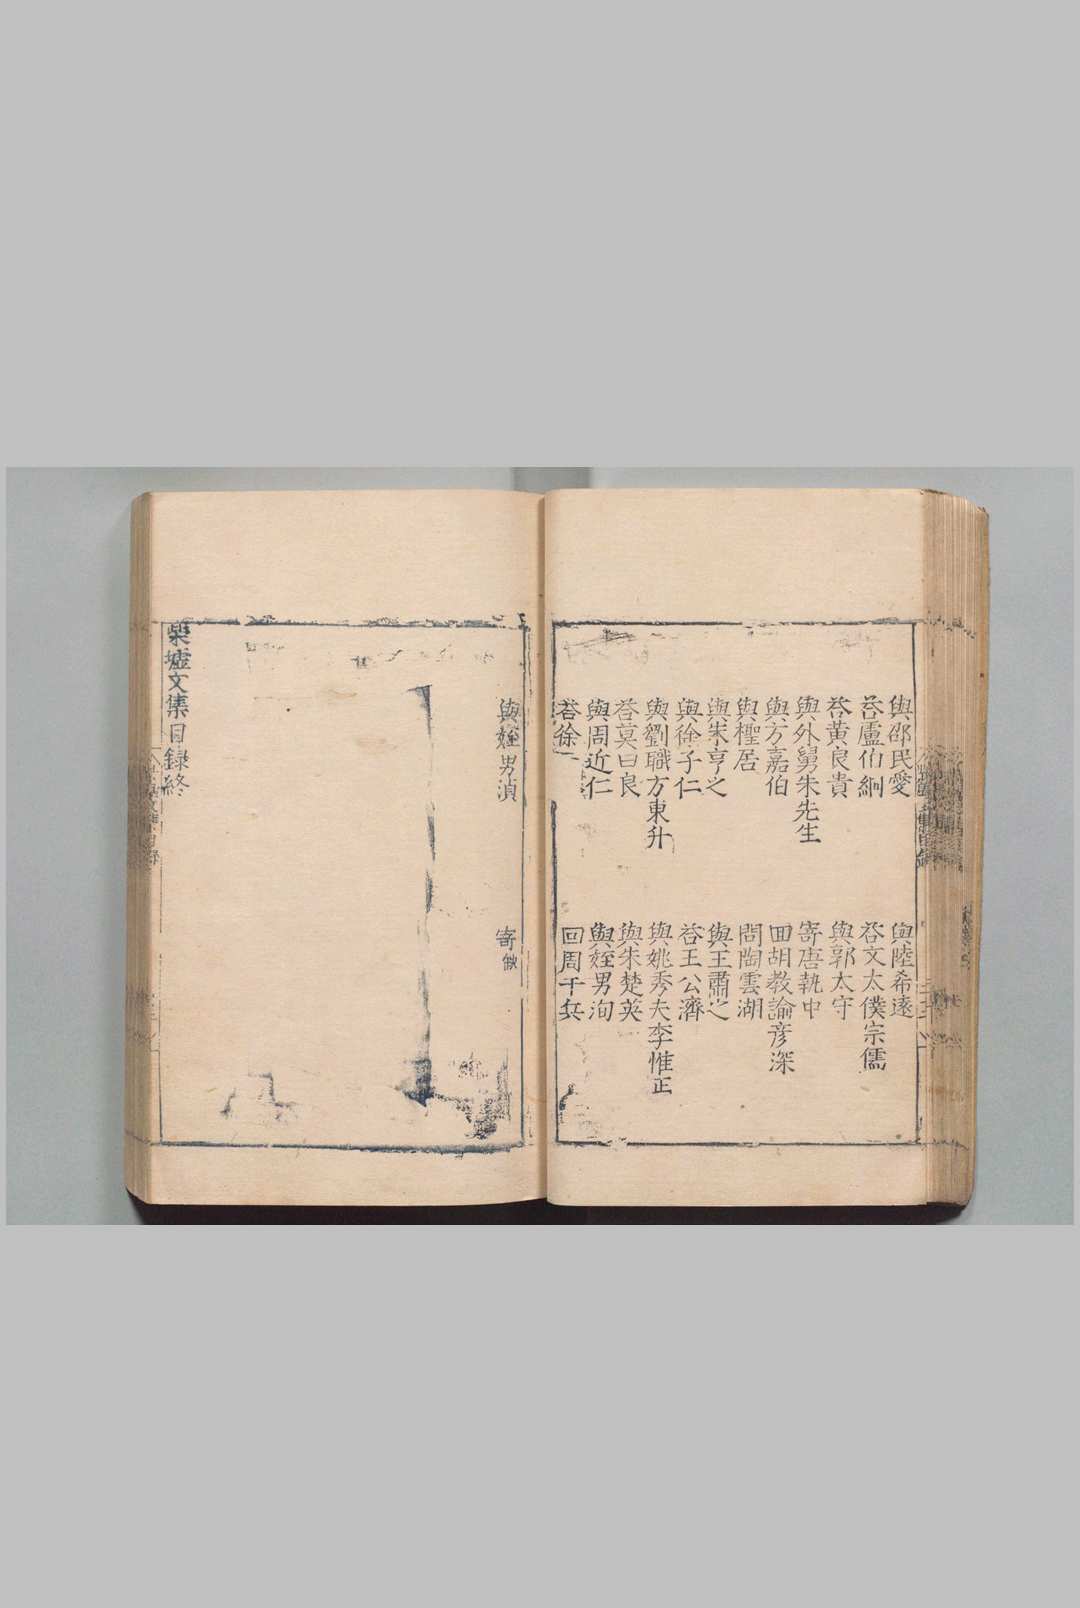 與邵民愛 與陸希遠
荅盧伯絅 荅文太僕宗儒
荅黃良貴 與郭太守
與外舅朱先生 寄唐執中
與方嘉伯 回胡教諭彥深
與檉居 問陶雲湖
與朱亨之 與王肅之
與徐子仁 荅王公濟
與劉職方東升 與姚秀夫李惟正
荅莫曰良 與朱楚英
與周近仁 與姪男洵
荅徐 回周千兵
與姪男湞 寄
柴墟文集目錄終